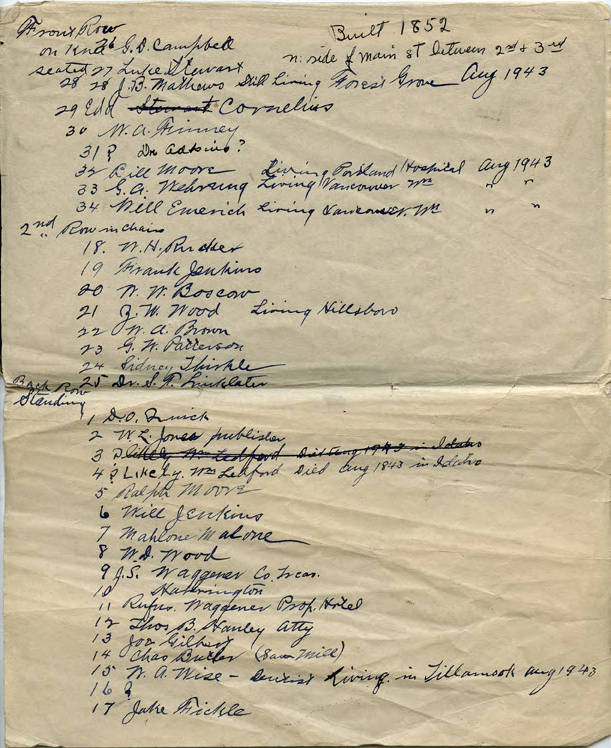 Front Row
Built 1852
on Knee 26 G.D. Campbell
n. side of main st between 2nd & 3rd
seated 27 Luke Stewart
28 28 J.B. Mathews Still Living Forest Grove Aug 1943
29 Edd Stewart Cornelius
30 W.A. Finney
31 ? Dr Adkins?
32 Bill Moore Living Portland Hospital Aug 1943
33 G.A. Wehrung Living Vancouver Wn " "
34 Will Emerich Living Vancouver. Wn " "
2nd Row in chairs
18. W.H. Rucker
19 Frank Jenkins
20 W.W. Boscow
21 Z.W. Wood Living Hillsboro
22 W.A. Brown
23 G.W. Patterson
24 Sidney Thirkle
25 Dr. S.T. Linklater
Back Row
Standing
1 D.O. Quick
2 W.L. Jones publisher
3 ? Likely Wm Ledford Died Aug 1943 in Idaho
4 ? Likely Wm Ledford Died Aug 1843 in Idaho
5 Ralph Moore
6 Will Jenkins
7 Mahlone Malone
8 W.D. Wood
9 J.S. Waggener Co. Treas.
10 Harrington
11 Rufus Waggener Prop. Hotel
12 Thos B. Hanley Atty
13 Joe Gilbert
14 Chas Butler (Saw Mill)
15 W.A. Wise - Dentist Living in Tillamook Aug 1943
16 ?
17 Jake Fickle